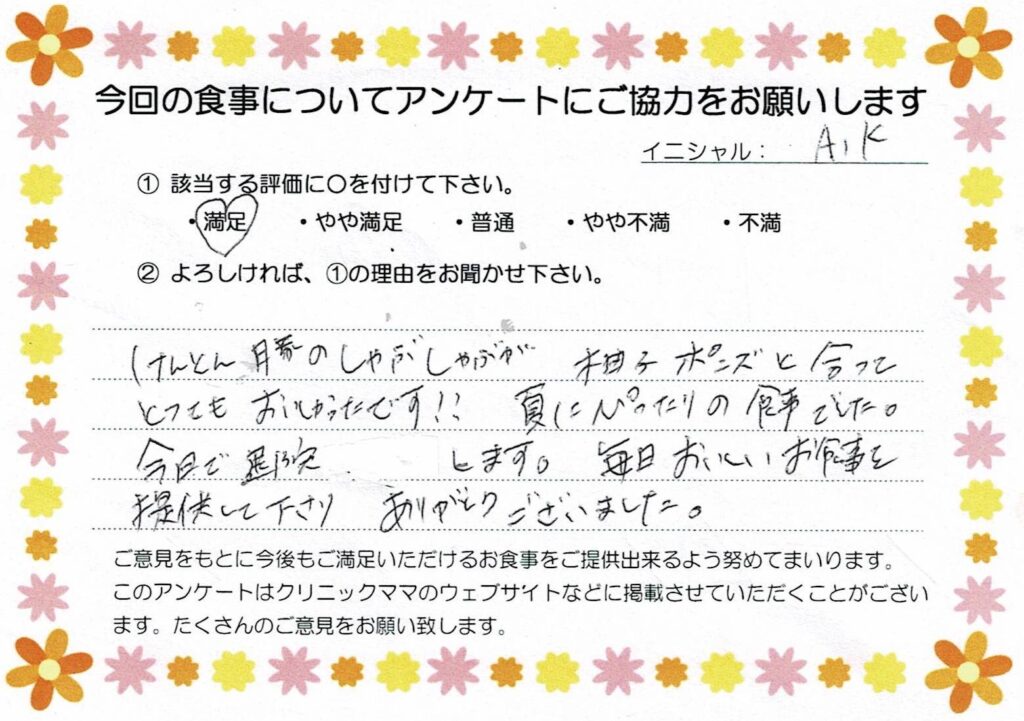 今回の食事についてアンケートにご協力をお願いします
イニシャル： A，K
① 該当する評価に〇を付けて下さい。
・満足 ・やや満足 ・普通 ・やや不満 ・不満
② よろしければ、①の理由をお聞かせ下さい。
けんとん豚のしゃぶしゃぶが 柚子ポンズと合って
とってもおいしかったです!! 夏にぴったりの食事でした。
今日で退院 します。毎日おいしいお食事を
提供して下さり ありがとうございました。
ご意見をもとに今後もご満足いただけるお食事をご提供出来るよう努めてまいります。
このアンケートはクリニックママのウェブサイトなどに掲載させていただくことがござい
ます。たくさんのご意見をお願い致します。